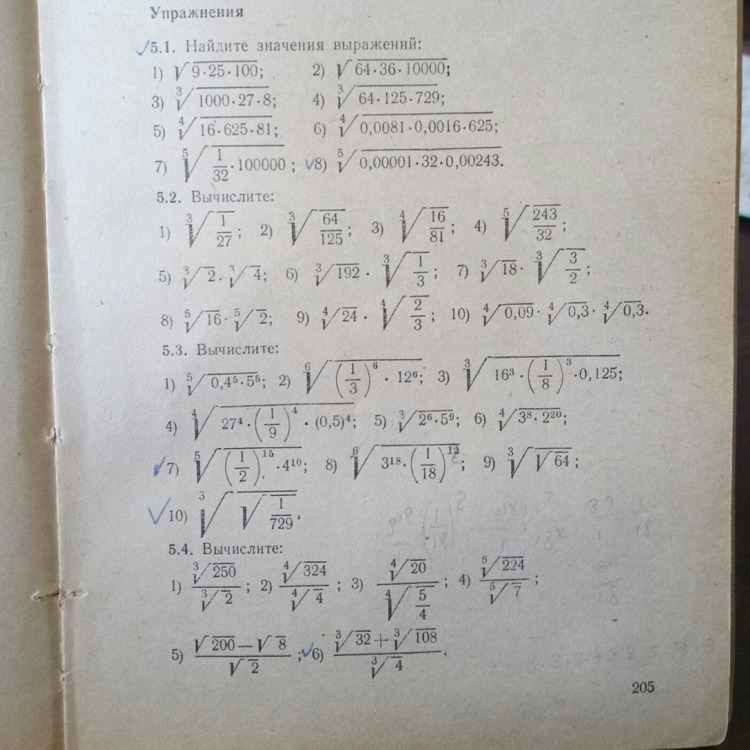 Упражнения
5.1. Найдите значения выражений:
1) √(9·25·100); 2) √(64·36·10000;
3) ∛(1000·27·8); 4) ∛(64·125·729);
5) ⁴√(16·625·81); 6) ⁴√(0,0081·0,0016·625);
7) ⁵√(1/32·100000); 8) ⁵√(0,00001·32·0,00243).
5.2. Вычислите:
1) ∛(1/27); 2) ∛(64/125); 3) ⁴√(16/81); 4) ⁵√(243/32);
5) ∛2·∛4; 6) ∛192·∛(1/3); 7) ∛18·∛(3/2);
8) ⁵√16·⁵√2; 9) ⁴√24·⁴√(2/3); 10) ⁴√0,09·⁴√0,3·⁴√0,3.
5.3. Вычислите:
1) ⁵√(0,4⁵·5⁵); 2) ⁶√((1/3)⁶·12⁶); 3) ∛(16³·(1/8)³·0,125);
4) ⁴√(27⁴·(1/9)⁴·(0,5)⁴); 5) ∛(2⁶·5⁹); 6) ⁴√(3⁸·2²⁰);
7) ⁵√((1/2)¹⁵·4¹⁰); 8) ⁶√(3¹⁸·(1/18)¹²); 9) ∛(√64);
10) ∛(√(1/729)).
5.4. Вычислите:
1) ∛250/∛2; 2) ⁴√324/⁴√4; 3) ⁴√20/⁴√(5/4); 4) ⁵√224/⁵√7;
5) (√200−√8)/√2; 6) (∛32+∛108)/∛4.
205